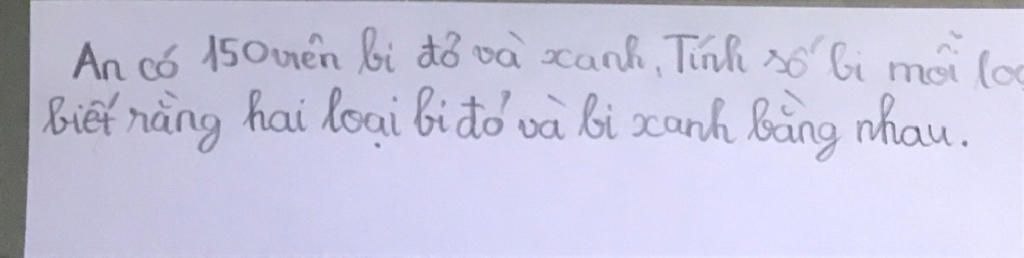 An có 150 viên bi đỏ và xanh. Tính số bi mỗi loạ
biết rằng hai loại bi đỏ và bi xanh bằng nhau.